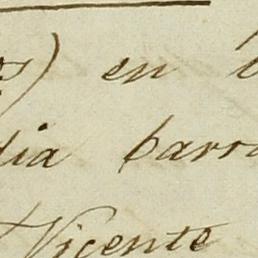 ) en
dia barra
Vicente